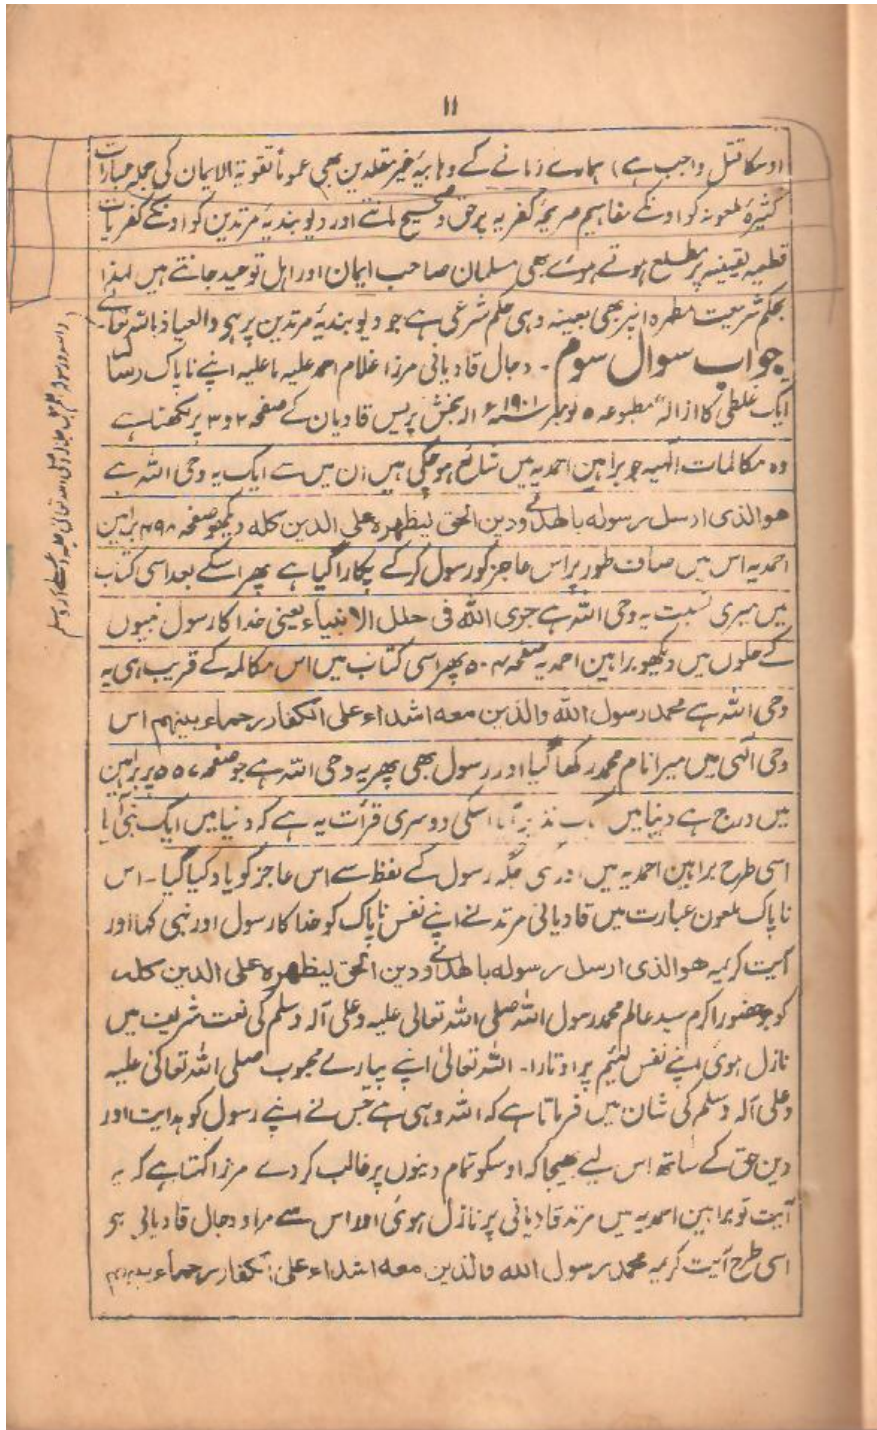 ۱۱
اوسکا قتل واجب ہے) ہمارے زمانے کے وہابیۂ غیر مقلدین بھی عموماً تقویۃ الایمان کی جملہ عبارات
کثیرۂ ملعونہ کو اونکے مفاہیم صریحۂ کفریہ پر حق و صحیح مانتے اور دیوبندیۂ مرتدین کو اونکے کفریات
قطعیہ یقینیہ پر مطلع ہوتے ہوئے بھی مسلمان صاحب ایمان اور اہل توحید جانتے ہیں لہذا
بحکم شریعت مطہرہ انپر بھی بعینہ وہی حکم شرعی ہے جو دیوبندیۂ مرتدین پر ہی والعیاذ باللہ تعالیٰ۔
جواب سوال سوم۔ دجال قادیانی مرزا غلام احمد علیہ ما علیہ اپنے ناپاک رسالے
ایک غلطی کا ازالہ" مطبوعہ ۵ نومبر سنہ ۱۹۰۱ء الہ بخش پریس قادیان کے صفحہ ۲ و ۳ پر لکھتا ہے
وہ مکالمات الٰہیہ جو براہین احمدیہ میں شائع ہو چکی ہیں ان میں سے ایک یہ وحی اللہ ہے
ھوالذی ارسل رسولہ بالھدیٰ ودین الحق لیظھرہ علی الدین کلہ دیکھو صفحہ ۴۹۸ براہین
احمدیہ اس میں صاف طور پر اس عاجز کو رسول کرکے پکارا گیا ہے پھر اسکے بعد اسی کتاب
میں میری نسبت یہ وحی اللہ ہے جری اللہ فی حلل الانبیاء یعنی خدا کا رسول نبیوں
کے حلوں میں دیکھو براہین احمدیہ صفحہ ۵۰۴ پھر اسی کتاب میں اس مکالمہ کے قریب ہی یہ
وحی اللہ ہے محمد رسول اللہ والذین معہ اشداء علی الکفار رحماء بینھم اس
وحی الٰہی میں میرا نام محمد رکھا گیا اور رسول بھی پھر یہ وحی اللہ ہے جو صفحہ ۵۵۷ پر براہین
میں درج ہے دنیا میں نذیر آیا اسکی دوسری قرأت یہ ہے کہ دنیا میں ایک نبی آیا
اسی طرح براہین احمدیہ میں اور کئی جگہ رسول کے لفظ سے اس عاجز کو یاد کیا گیا۔ اس
ناپاک ملعون عبارت میں قادیانی مرتد نے اپنے نفس ناپاک کو خدا کا رسول اور نبی کہا اور
آیت کریمہ ھوالذی ارسل رسولہ بالھدیٰ ودین الحق لیظھرہ علی الدین کلہ
کو جو حضور اکرم سید عالم محمد رسول اللہ صلی اللہ تعالی علیہ وعلی آلہ وسلم کی نعت شریف میں
نازل ہوئی اپنے نفس لئیم پر اوتارا۔ اللہ تعالیٰ اپنے پیارے محبوب صلی اللہ تعالیٰ علیہ
وعلی آلہ وسلم کی شان میں فرماتا ہے کہ اللہ وہی ہے جس نے اپنے رسول کو ہدایت اور
دین حق کے ساتھ اس لیے بھیجا کہ اوسکو تمام دینوں پر غالب کر دے مرزا کہتا ہے کہ یہ
آیت تو براہین احمدیہ میں مرتد قادیانی پر نازل ہوئی اور اس سے مراد دجال قادیانی ہی
اسی طرح آیت کریمہ محمد رسول اللہ والذین معہ اشداء علی الکفار رحماء بینھم